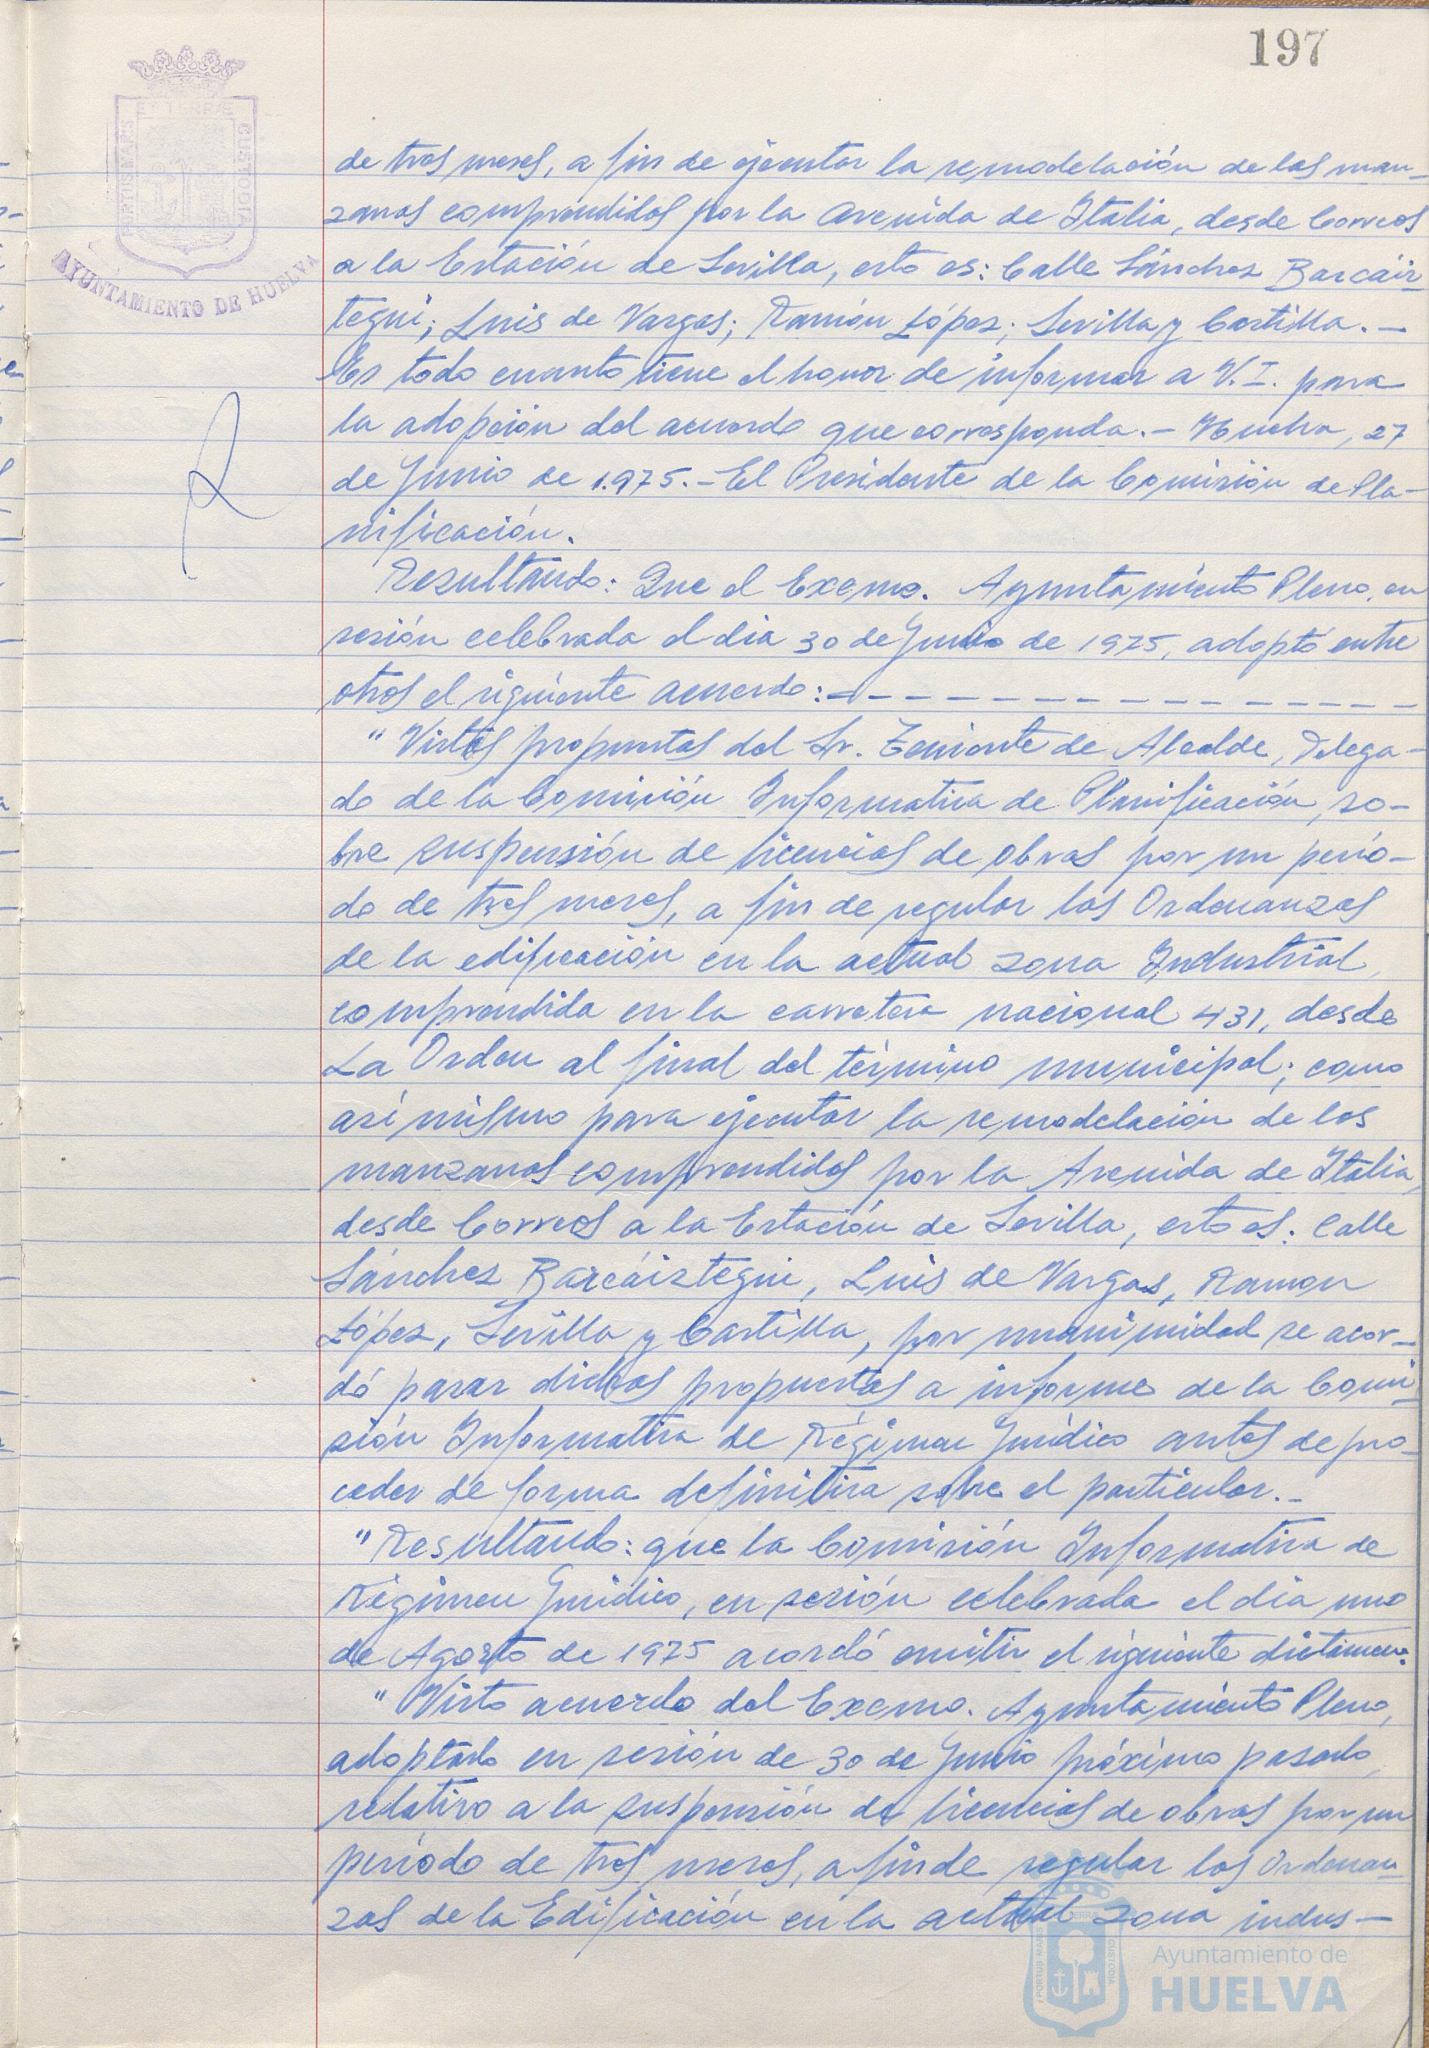 197
PORTUS MARIS ET TERRÆ CUSTODIA
AYUNTAMIENTO DE HUELVA
de tres meses, a fin de ejecutar la remodelación de las man-
zanas comprendidas por la Avenida de Italia, desde Correos
a la Estación de Sevilla, esto es: Calle Sánchez Barcáiz-
tegui; Luis de Vargas; Ramón López; Sevilla y Castilla.-
Es todo cuanto tiene el honor de informar a V.I. para
la adopción del acuerdo que corresponda.- Huelva, 27
de Junio de 1.975.- El Presidente de la Comisión de Pla-
nificación.
Resultando: Que el Excmo. Ayuntamiento Pleno, en
sesión celebrada el dia 30 de Junio de 1975, adoptó entre
otros el siguiente acuerdo:- - - - - - - - - - - - - - - -
"Vistas propuestas del Sr. Teniente de Alcalde, Delega-
do de la Comisión Informativa de Planificación, so-
bre suspensión de licencias de obras por un perío-
do de tres meses, a fin de regular las Ordenanzas
de la edificación en la actual zona Industrial,
comprendida en la carretera nacional 431, desde
La Orden al final del término municipal; como
asi mismo para ejecutar la remodelación de las
manzanas comprendidas por la Avenida de Italia,
desde Correos a la Estación de Sevilla, esto es: Calle
Sánchez Barcáiztegui, Luis de Vargas, Ramon
López, Sevilla y Castilla, por unanimidad se acor-
dó pasar dichas propuestas a informe de la Comi-
sión Informativa de Régimen Jurídico antes de pro-
ceder de forma definitiva sobre el particular.-
"Resultando: que la Comisión Informativa de
Régimen Jurídico, en sesión celebrada el dia uno
de Agosto de 1975 acordó emitir el siguiente dictamen:
"Visto acuerdo del Excmo. Ayuntamiento Pleno,
adoptado en sesión de 30 de Junio próximo pasado,
relativo a la suspensión de licencias de obras por un
período de tres meses, a fin de regular las Ordenan-
zas de la Edificación en la actual zona indus-
Ayuntamiento de
HUELVA